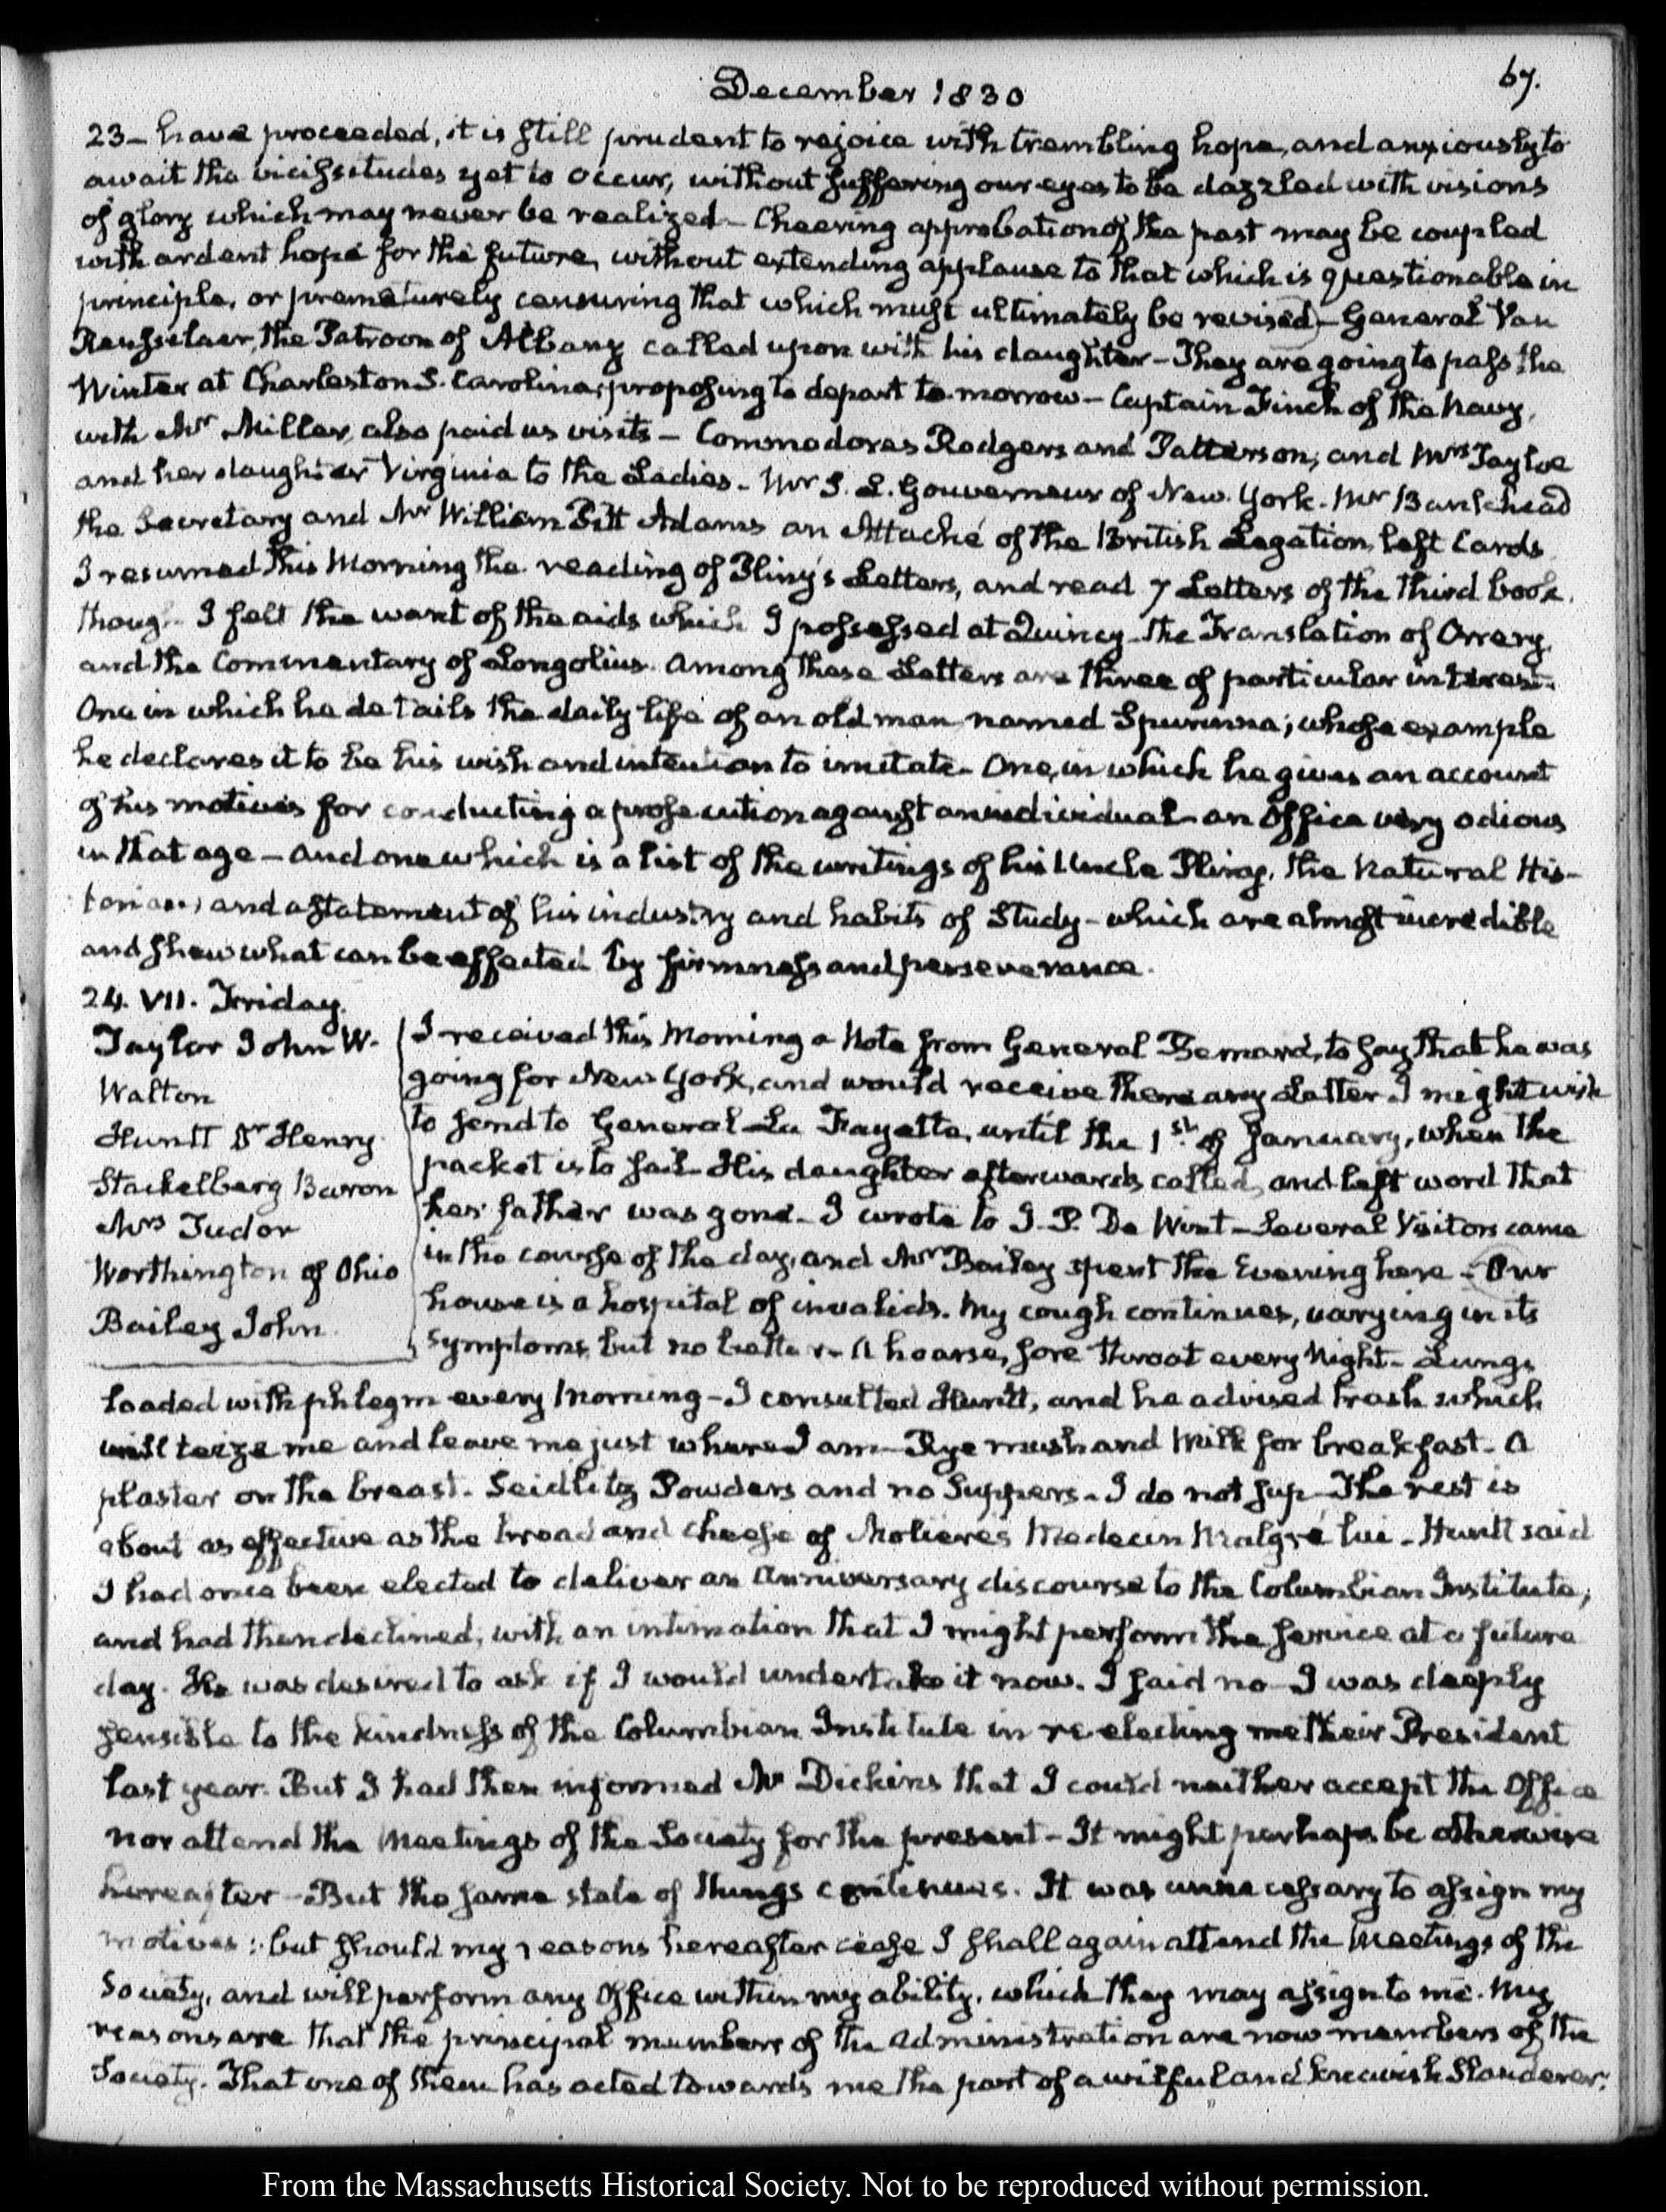 December 1830
67.
23 — have proceeded, it is still prudent to rejoice with trembling hope, and anxiously to
await the vicissitudes yet to occur, without suffering our eyes to be dazzled with visions
of glory which may never be realized — Cheering approbation of the past may be coupled
with ardent hope for the future, without extending applause to that which is questionable in
principle, or prematurely censuring that which must ultimately be revised — General Van
Rensselaer, the Patroon of Albany called upon with his daughter — They are going to pass the
Winter at Charleston S. Carolina, proposing to depart to-morrow — Captain Finch of the Navy,
with Mr Miller, also paid us visits — Commodores Rodgers and Patterson, and Mrs Tayloe
and her daughter Virginia to the Ladies. Mr S. L. Gouverneur of New-York. Mr Bankhead
the Secretary and Mr William Pitt Adams an Attaché of the British Legation, left Cards
I resumed this Morning the reading of Pliny's Letters, and read 7 Letters of the third book.
though I felt the want of the aids which I possessed at Quincy — the Translation of Orrery,
and the Commentary of Longolius. Among these Letters are three of particular interest.
One in which he details the daily life of an old man named Spurinna; whose example
he declares it to be his wish and intention to imitate — One, in which he gives an account
of his motives for conducting a prosecution against an individual — an Office very odious
in that age — and one which is a list of the writings of his Uncle Pliny, the Natural His-
torian, and a statement of his industry and habits of Study — which are almost incredible
and shew what can be effected by firmness and perseverance.
24. VII. Friday.
Taylor John W.
Walton
Huntt Dr Henry.
Stackelberg Baron
Mrs Tudor
Worthington of Ohio
Bailey John.
I received this Morning a Note from General Bernard, to say that he was
going for New-York, and would receive there any Letter I might wish
to send to General La Fayette, until the 1st of January, when the
packet is to sail. His daughter afterwards called, and left word that
her father was gone — I wrote to J. P. De Wint — Several Visitors came
in the course of the day, and Mr Bailey spent the Evening here — Our
house is a hospital of invalids. My cough continues, varying in its
symptoms, but no better — A hoarse, sore throat every Night — Lungs
loaded with phlegm every Morning — I consulted Huntt, and he advised trash which
will teize me and leave me just where I am — Rye mush and Milk for breakfast — A
plaster on the breast. Seidlitz Powders and no Suppers — I do not sup — The rest is
about as effective as the bread and cheese of Molieres Medecin Malgré lui — Huntt said
I had once been elected to deliver an Anniversary discourse to the Columbian Institute,
and had then declined, with an intimation that I might perform the service at a future
day. He was desired to ask if I would undertake it now. I said no — I was deeply
sensible to the kindness of the Columbian Institute in re-electing me their President
last year. But I had then informed Mr Dickins that I could neither accept the Office
nor attend the Meetings of the Society for the present — It might perhaps be otherwise
hereafter — But the same state of things continues. It was unnecessary to assign my
motives: but should my reasons hereafter cease I shall again attend the Meetings of the
Society, and will perform any Office within my ability, which they may assign to me. My
reasons are that the principal members of the Administration are now members of the
Society. That one of them has acted towards me the part of a wilful and knavish Slanderer.
From the Massachusetts Historical Society. Not to be reproduced without permission.